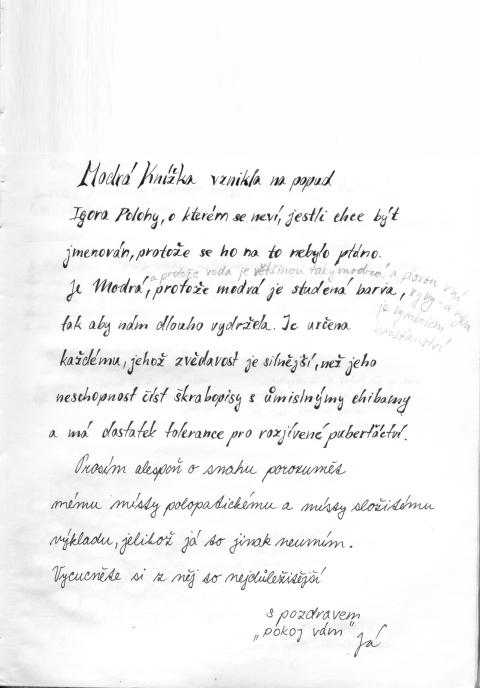 Modrá Knížka vznikla na popud
Igora Polohy, o kterém se neví, jestli chce být
jmenován, protože se ho na to nebylo ptáno.
a protože voda je většinou taky modrá a plavou v ní
ryby - a ryba
je symbolem
křesťanství
Je Modrá, protože modrá je studená barva,
tak aby nám dlouho vydržela. Je určena
každému, jehož zvědavost je silnější, než jeho
neschopnost číst škrabopisy s úmislnýmy chibamy
a má dostatek tolerance pro rozjívené puberťáctví.
Prosím alespoň o snahu porozumět
mému místy polopatickému a místy složitému
výkladu, jelikož já to jinak neumím.
Vycucněte si z něj to nejdůležitější
s pozdravem
"pokoj vám"
Já